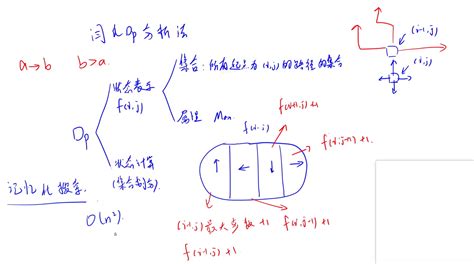 闫氏Dp分析法
a→b b>a
(i-1,j)
(i,j)
Dp
状态表示
f(i,j)
集合:所有起点为(i,j)的路径的集合
属性 Max
状态计算
(集合划分)
f(i,j+1)+1
记忆化搜索
O(n²)
(i-1,j)最大步数+1
f(i,j-1)+1
f(i-1,j)+1